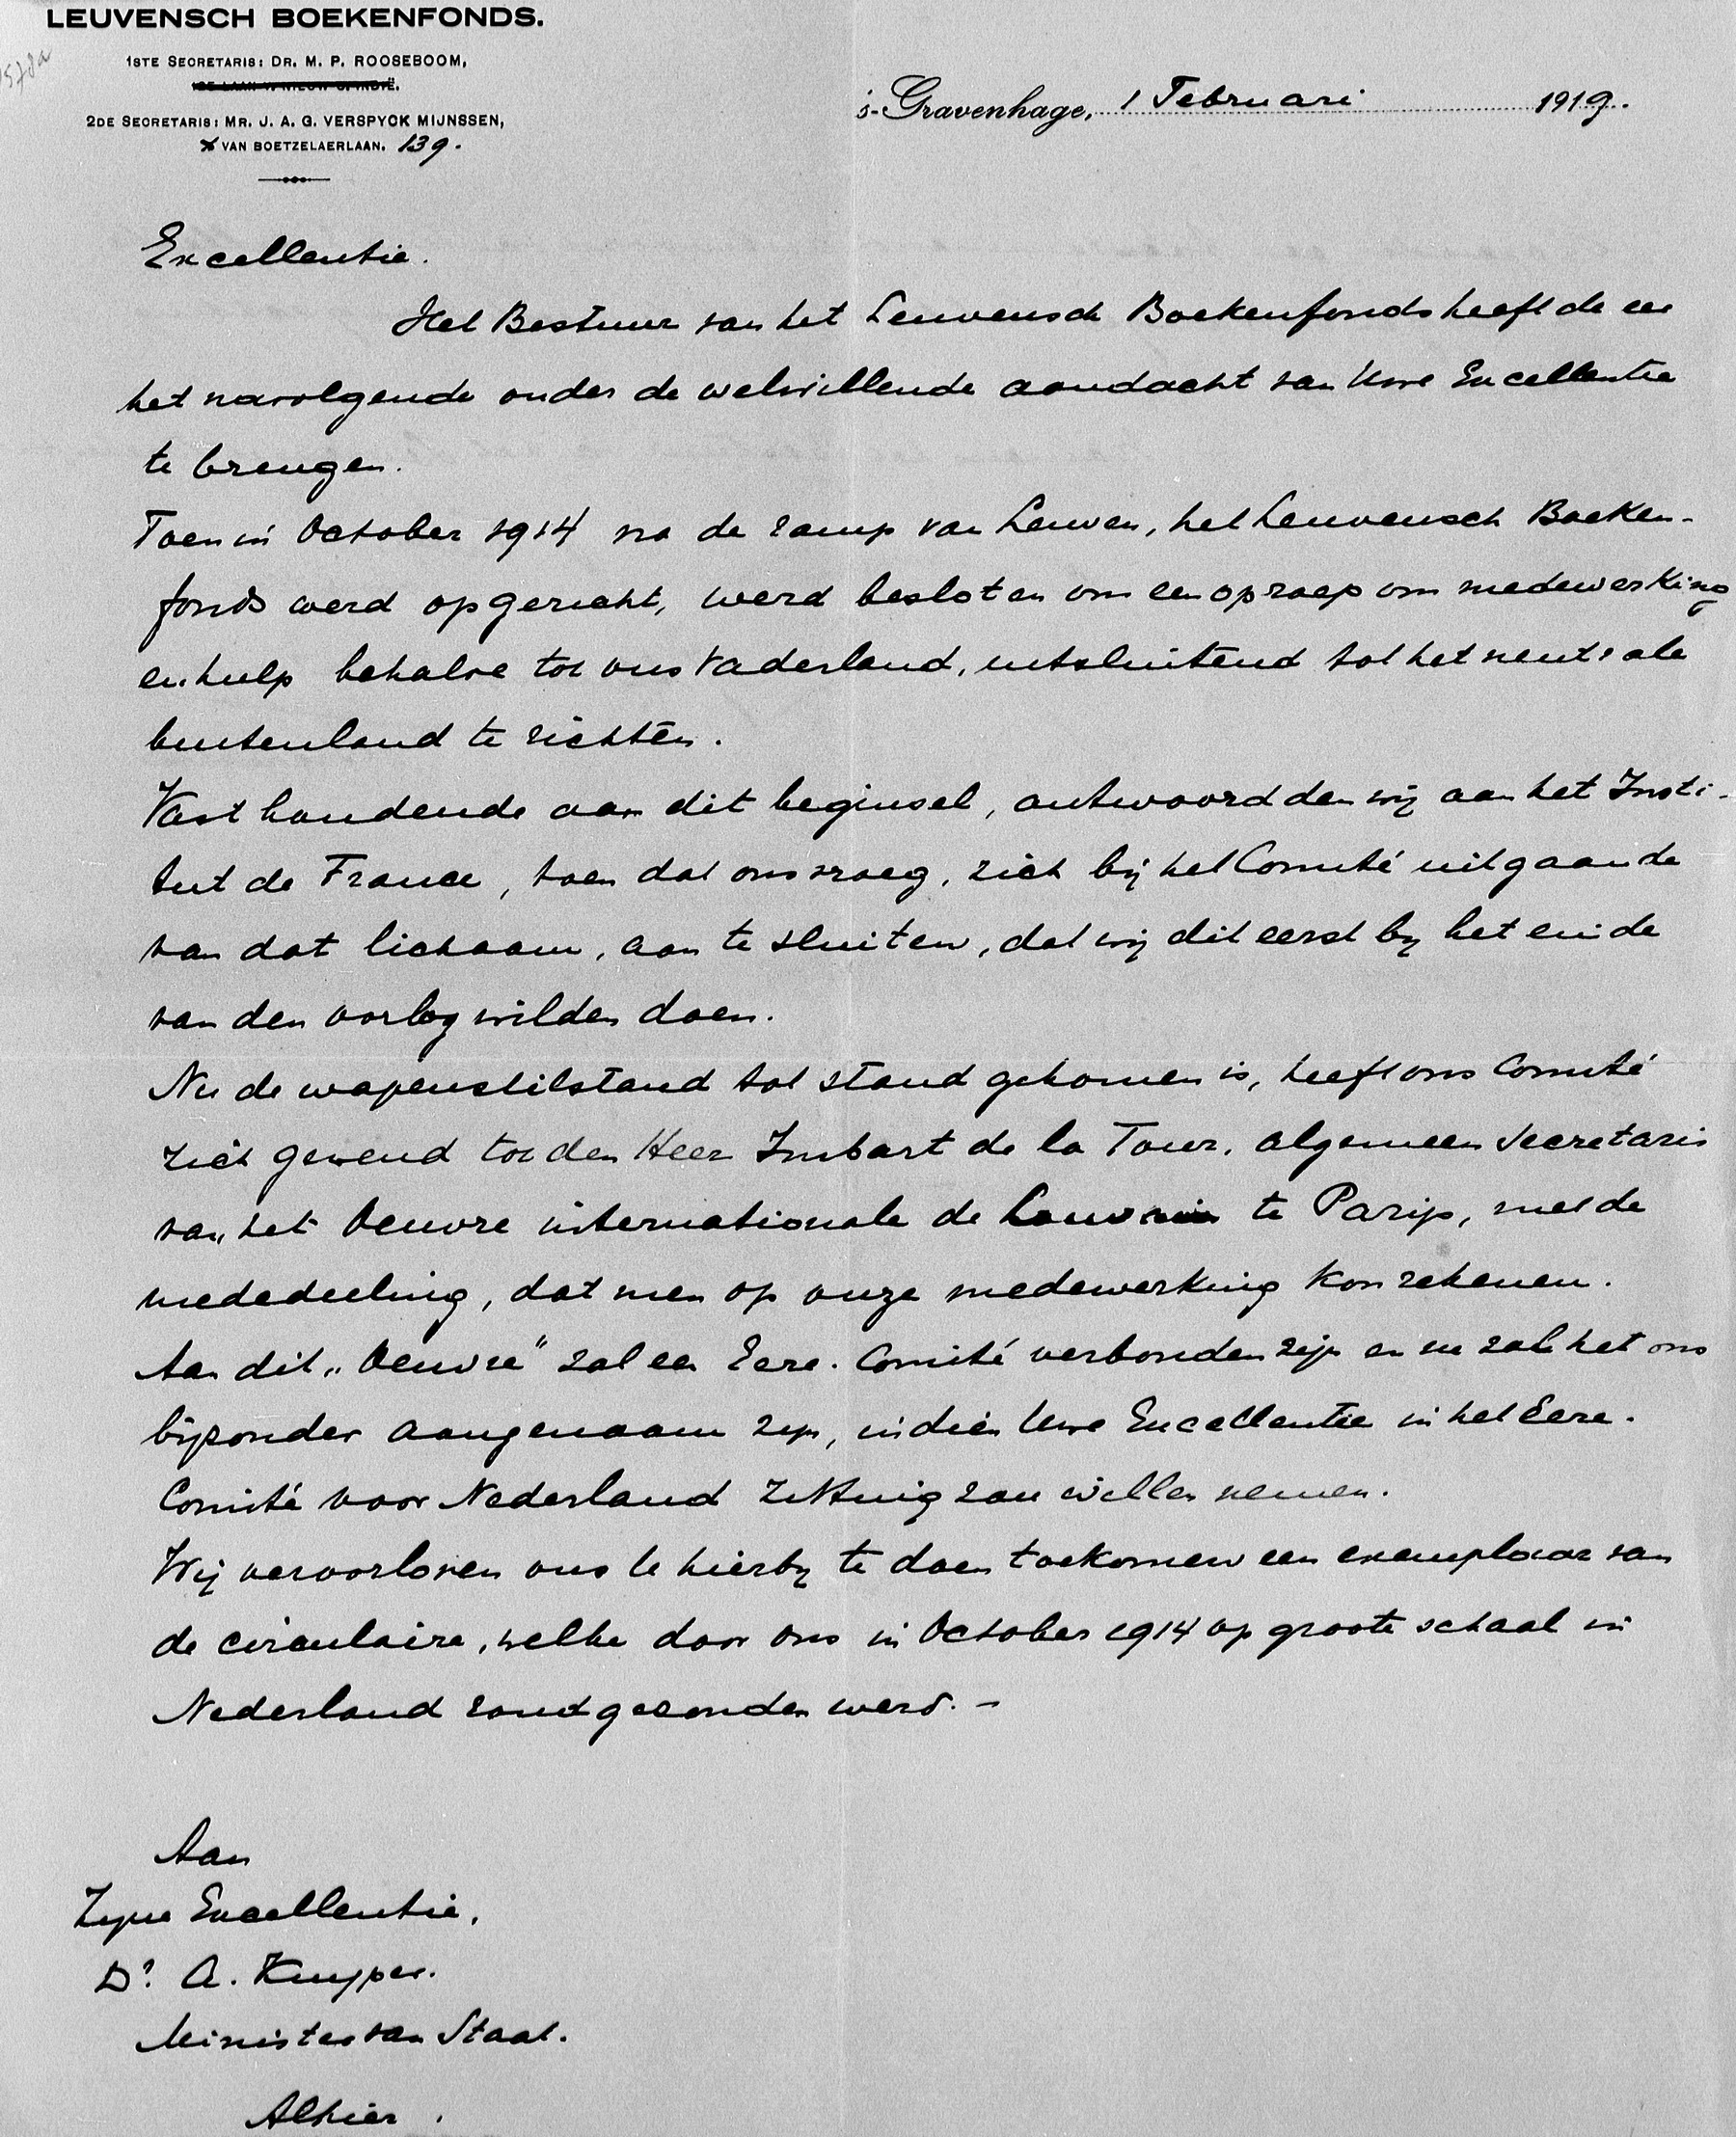 LEUVENSCH BOEKENFONDS.
1STE SECRETARIS: DR. M. P. ROOSEBOOM,
2DE SECRETARIS: MR. J. A. G. VERSPYCK MIJNSSEN,
VAN BOETZELAERLAAN. 139.
's-Gravenhage, 1 Februari 1919.
Excellentie.
Het Bestuur van het Leuvensch Boekenfonds heeft de eer
het navolgende onder de welwillende aandacht van Uwe Excellentie
te brengen.
Toen in October 1914 na de ramp van Leuven, het Leuvensch Boeken-
fonds werd opgericht, werd besloten om een oproep om medewerking
en hulp behalve tot ons Vaderland, uitsluitend tot het neutrale
buitenland te richten.
Vast houdende aan dit beginsel, antwoordden wij aan het Insti-
tut de France, toen dat ons vroeg, zich bij het Comité uitgaande
van dat lichaam, aan te sluiten, dat wij dit eerst bij het einde
van den oorlog wilden doen.
Nu de wapenstilstand tot stand gekomen is, heeft ons Comité
zich gewend tot den Heer Imbart de la Tour, algemeen Secretaris
van het Oeuvre internationale de Louvain te Parijs, met de
mededeeling, dat men op onze medewerking kon rekenen.
Aan dit „Oeuvre" zal een Eere-Comité verbonden zijn en nu zal het ons
bijzonder aangenaam zijn, indien Uwe Excellentie in het Eere-
Comité voor Nederland zitting zou willen nemen.
Wij veroorloven ons U hierbij te doen toekomen een exemplaar van
de circulaire, welke door ons in October 1914 op groote schaal in
Nederland rondgezonden werd. -
Aan
Zijne Excellentie,
Dr. A. Kuyper.
Minister van Staat.
Alhier.